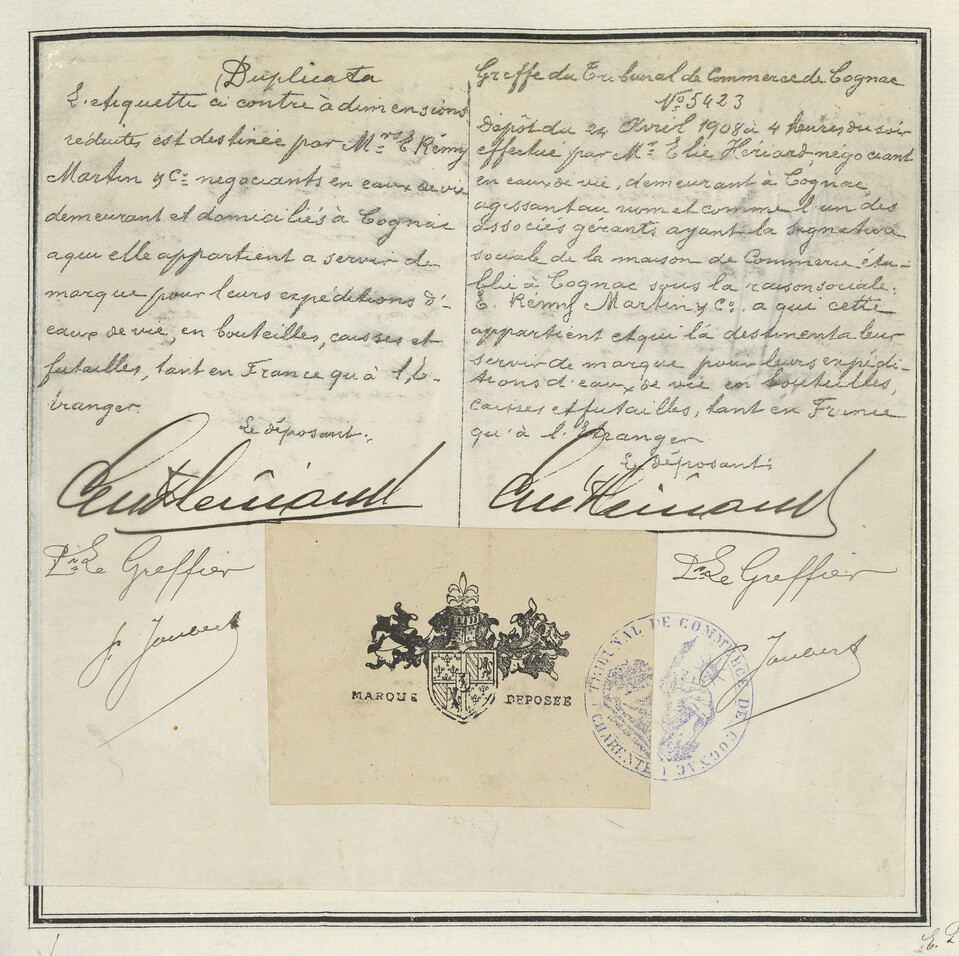 Duplicata
L'etiquette ci contre à dimensions
réduites est destinée par Mrs E. Rémy
Martin & Co negociants en eaux de vie
demeurant et domiciliés à Cognac
a qui elle appartient a servir de
marque pour leurs expéditions d'-
eaux de vie, en bouteilles, caisses et
futailles, tant en France qu'à l'é-
tranger.
Le déposant.
Pr Le Greffier
F. Joubert
Greffe du Tribunal de Commerce de Cognac
No 5423
Dépôt du 24 Avril 1908 à 4 heures du soir
effectué par Mr Elie Hériard négociant
en eaux de vie, demeurant à Cognac,
agissant au nom et comme l'un des
associés gerants ayant la signature
sociale de la maison de Commerce éta-
blie à Cognac sous la raison sociale:
E. Rémy Martin & Co. a qui cette
appartient et qui la destinent a leur
servir de marque pour leurs expédi-
tions d'eaux de vie en bouteilles,
caisses et futailles, tant en France
qu'à l'Etranger
Le déposant:
Pr Le Greffier
F. Joubert
MARQUE DEPOSEE
TRIBUNAL DE COMMERCE DE COGNAC
(CHARENTE)